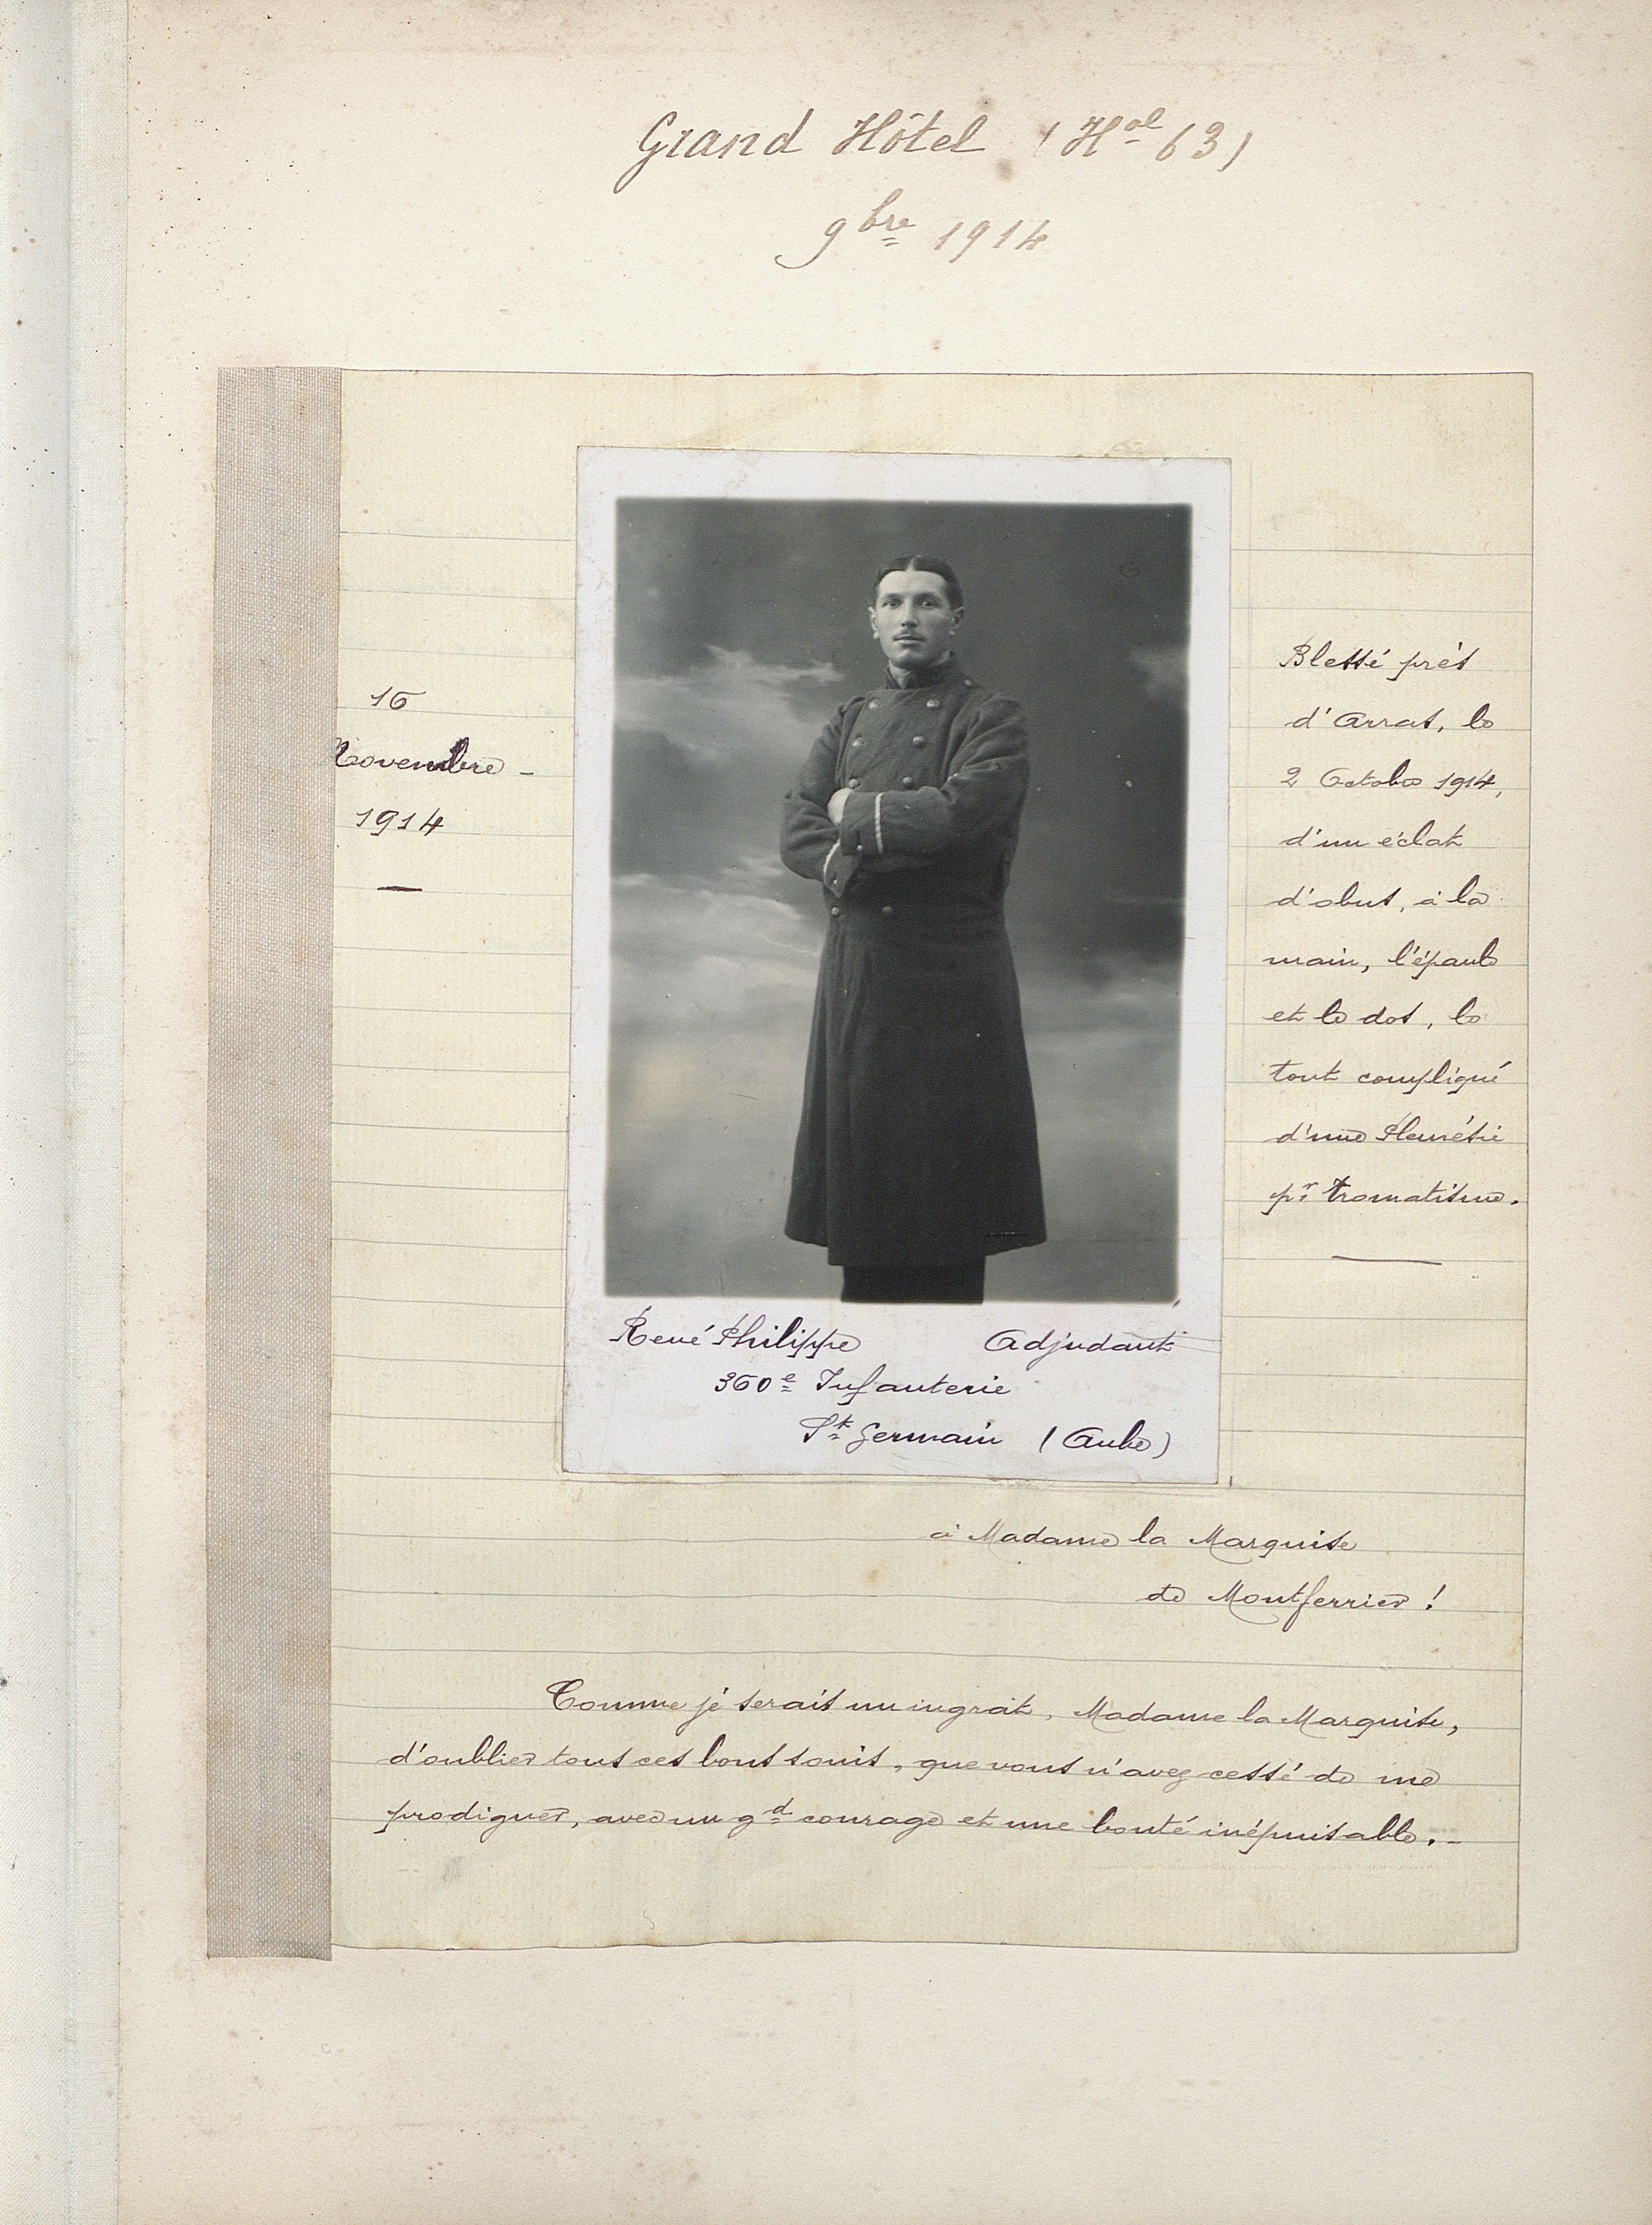 Grand Hôtel (Hal 63)
9bre 1914
16
Novembre -
1914
Blessé près
d'Arras, le
2 Octobre 1914,
d'un éclat
d'obus, à la
main, l'épaule
et le dos, le
tout compliqué
d'une Pleurésie
pr tromatisme.
René Philippe Adjudant
360e Infanterie
St Germain (Aube)
à Madame la Marquise
de Montferrier !
Comme je serais un ingrat, Madame la Marquise,
d'oublier tous ces bons soins, que vous n'avez cessé de me
prodiguer, avec un gd courage et une bonté inépuisable. -